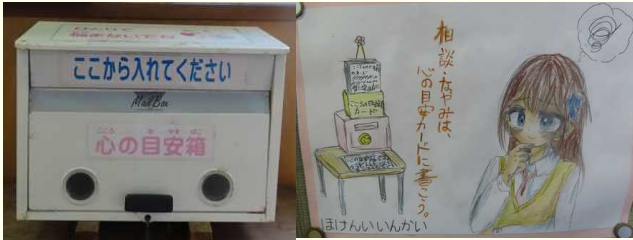 ここから入れてください
Mail Box
こころ め やす ばこ
心の目安箱
相談・なやみは、
心の目安カードに書こう。
カード
ほけんいいんかい